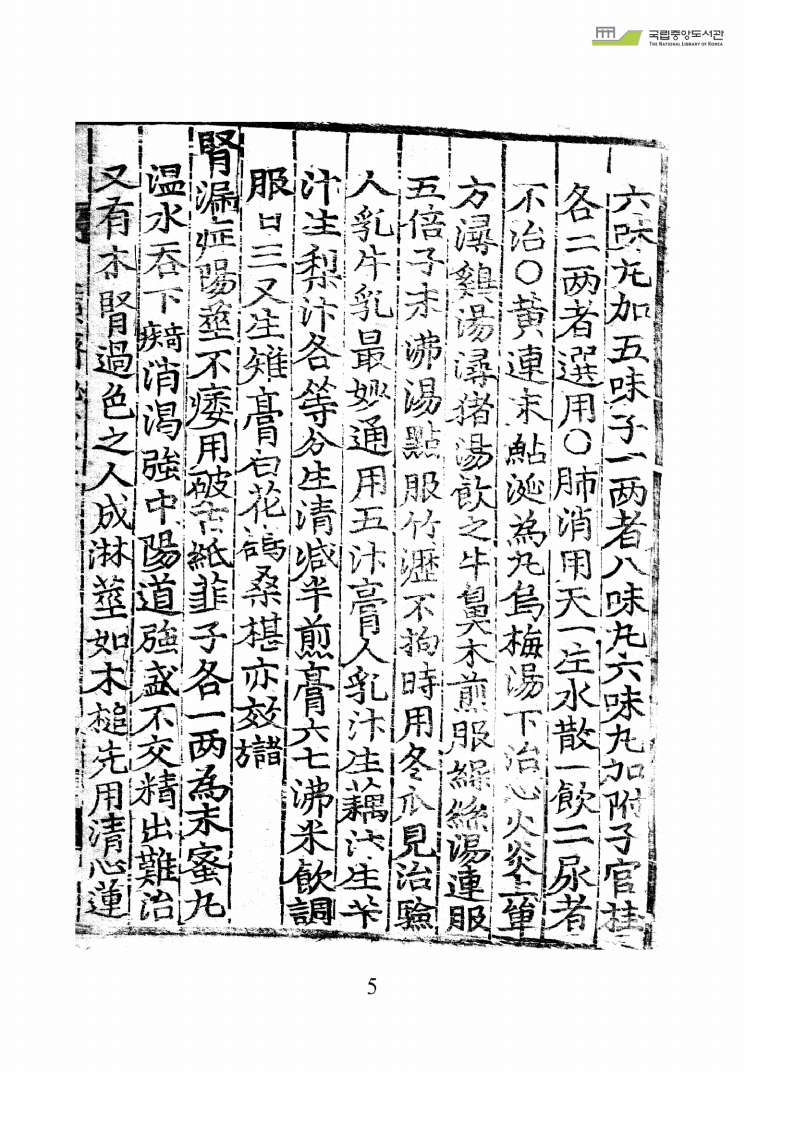 국립중앙도서관
THE NATIONAL LIBRARY OF KOREA
六味丸加五味子一两者八味丸六味丸加附子官桂
各二两者選用○肺消用天一生水散一飮二尿者
不治○黃連末鮎涎為丸烏梅湯下治心火炎上單
方燖鷄湯燖猪湯飮之牛鼻木煎服繰絲湯連服
五倍子末沸湯點服竹瀝不拘時用冬瓜見治驗
人乳牛乳最妙通用五汁膏人乳汁生藕汁生芐
汁生梨汁各等分生清减半煎膏六七沸米飮調
服日三又生雉膏白花鴿桑椹亦效諸方
腎漏症陽莖不痿用破古紙韮子各一两為末蜜丸
温水吞下奇疾消渴強中陽道強盛不交精出難治
又有木腎過色之人成淋莖如木槌先用清心蓮
5